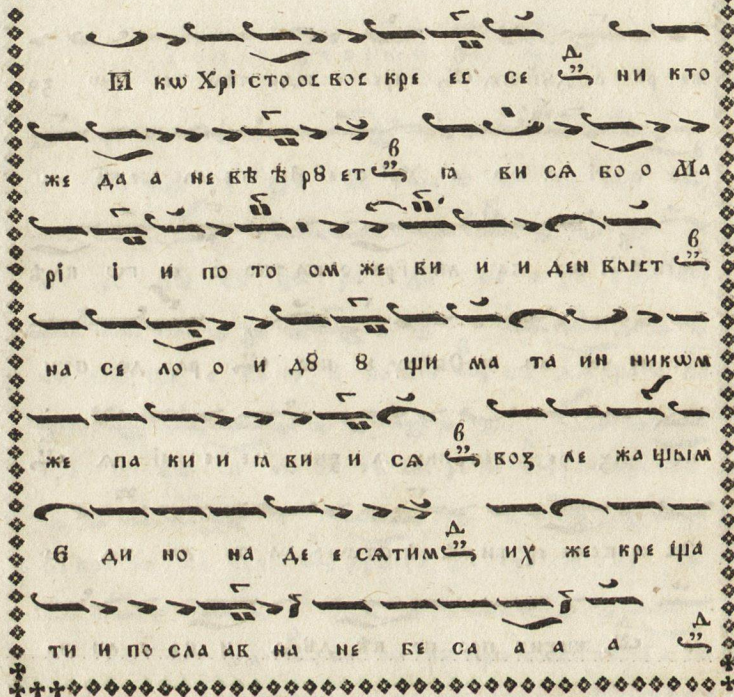 Ꙗ кѡ Хрі сто ос вос кре ес се ни кто
же да а не вѣ ѣ рꙋ ет ꙗ ви сѧ бо о Ма
рі і и по то ом же ви и и ден быст
на се ло о и дꙋ ꙋ щи ма та ин никѡм
же па ки и ꙗ ви и сѧ воз ле жа щым
Є ди но на де е сѧтим их же кре ща
ти и по сла ав на не бе са а а а